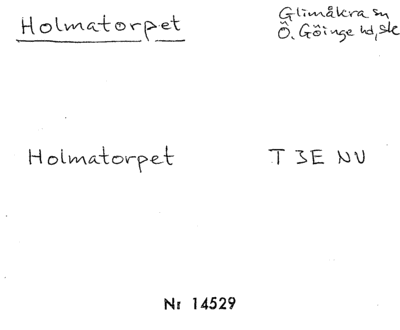 Holmatorpet
Glimåkra sn
Ö. Göinge hd, Sk
Holmatorpet
T 3E NV
Nr 14529